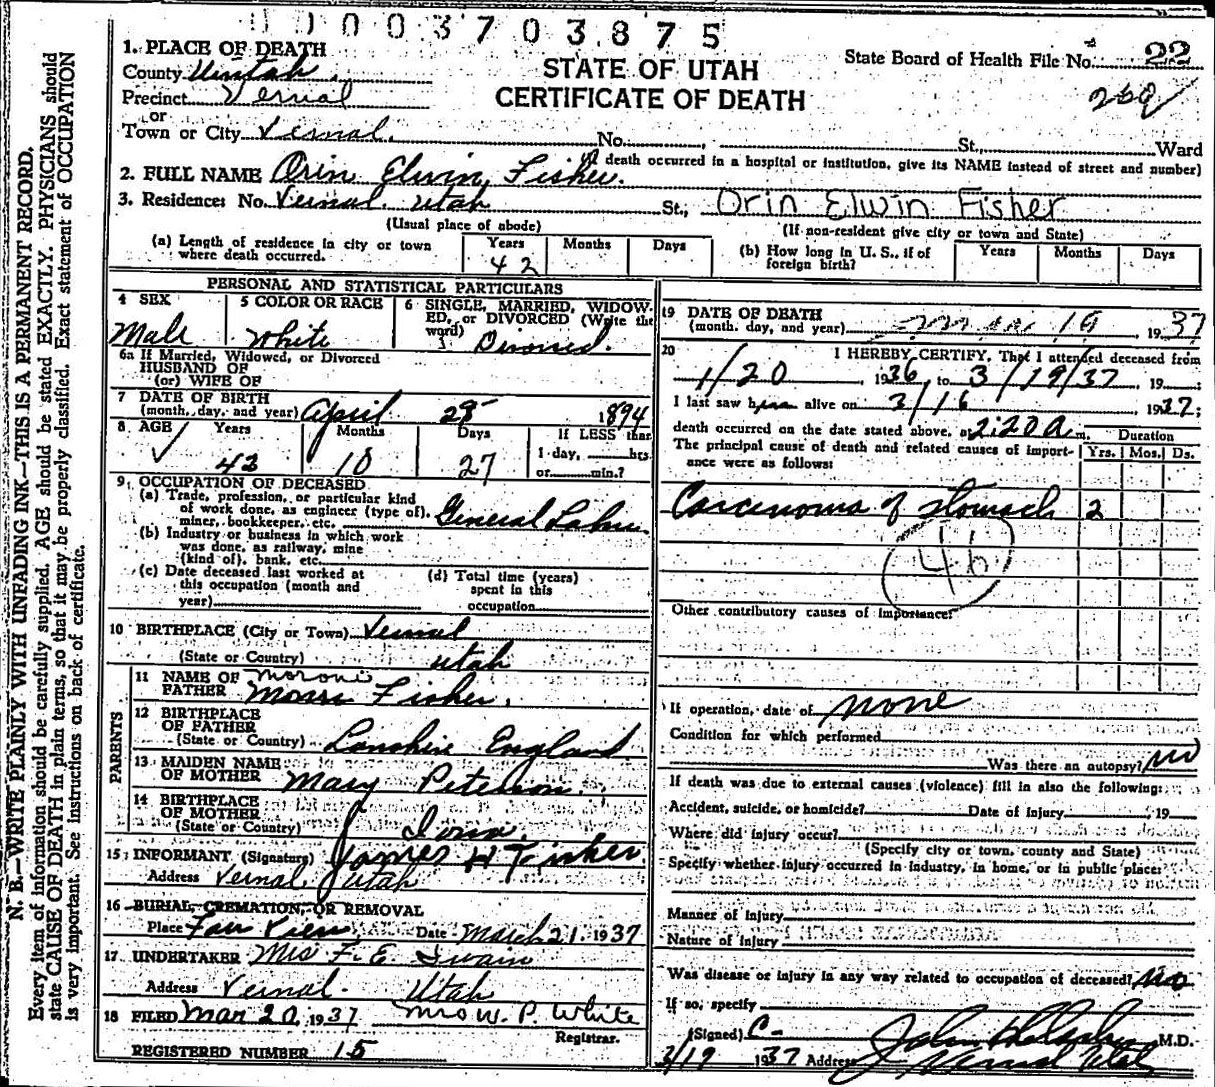 0003703875
State Board of Health File No. 22
260
STATE OF UTAH
CERTIFICATE OF DEATH
1. PLACE OF DEATH
County Uintah
Precinct Vernal
or
Town or City Vernal. No. , St., Ward
death occurred in a hospital or institution, give its NAME instead of street and number)
2. FULL NAME Orin Elwin Fisher.
3. Residence: No. Vernal Utah St., Orin Elwin Fisher
(Usual place of abode) (If non-resident give city or town and State)
(a) Length of residence in city or town where death occurred. Years 42 Months Days
(b) How long in U. S., if of foreign birth? Years Months Days
PERSONAL AND STATISTICAL PARTICULARS
4 SEX Male
5 COLOR OR RACE White
6 SINGLE, MARRIED, WIDOWED, or DIVORCED (Write the word) Divorced.
6a If Married, Widowed, or Divorced
HUSBAND OF
(or) WIFE OF
7 DATE OF BIRTH
(month, day, and year) April 28 1894
8 AGE Years 42 Months 10 Days 27 If LESS than 1 day, hrs. or min.?
9. OCCUPATION OF DECEASED
(a) Trade, profession, or particular kind
of work done, as engineer (type of),
miner, bookkeeper, etc. General Labor
(b) Industry or business in which work
was done, as railway, mine
(kind of), bank, etc.
(c) Date deceased last worked at
this occupation (month and
year)
(d) Total time (years)
spent in this
occupation
10 BIRTHPLACE (City or Town) Vernal
(State or Country) Utah
PARENTS
11 NAME OF FATHER Moroni
Fisher.
12 BIRTHPLACE
OF FATHER
(State or Country) England
13 MAIDEN NAME
OF MOTHER Mary Peterson.
14 BIRTHPLACE
OF MOTHER
(State or Country)
15 INFORMANT (Signature) James H Fisher.
Address Vernal, Utah
16 BURIAL, CREMATION, OR REMOVAL
Place Fair View Date March 21, 1937
17 UNDERTAKER Mrs F. E. Swain
Address Vernal. Utah
18 FILED Mar 20, 1937 Mrs W. P. White
Registrar.
REGISTERED NUMBER 15
19 DATE OF DEATH
(month, day, and year) 19 1937
20 I HEREBY CERTIFY, That I attended deceased from
1/20, 1936, to 3/19/37, 19 ;
I last saw him alive on 3/16, 1937;
death occurred on the date stated above, at 2:20 A m. Duration
The principal cause of death and related causes of importance were as follows: Yrs. Mos. Ds.
Carcinoma of stomach 2
46
Other contributory causes of importance:
If operation, date of none
Condition for which performed
Was there an autopsy? No
If death was due to external causes (violence) fill in also the following:
Accident, suicide, or homicide? Date of injury 19
Where did injury occur?
(Specify city or town, county and State)
Specify whether injury occurred in industry, in home, or in public place:
Manner of Injury
Nature of Injury
Was disease or injury in any way related to occupation of deceased? No
If so, specify
(Signed) M.D.
3/19 1937 Address Vernal Utah
N. B.—WRITE PLAINLY WITH UNFADING INK—THIS IS A PERMANENT RECORD.
Every item of information should be carefully supplied. AGE should be stated EXACTLY. PHYSICIANS should
state CAUSE OF DEATH in plain terms, so that it may be properly classified. Exact statement of OCCUPATION
is very important. See instructions on back of certificate.